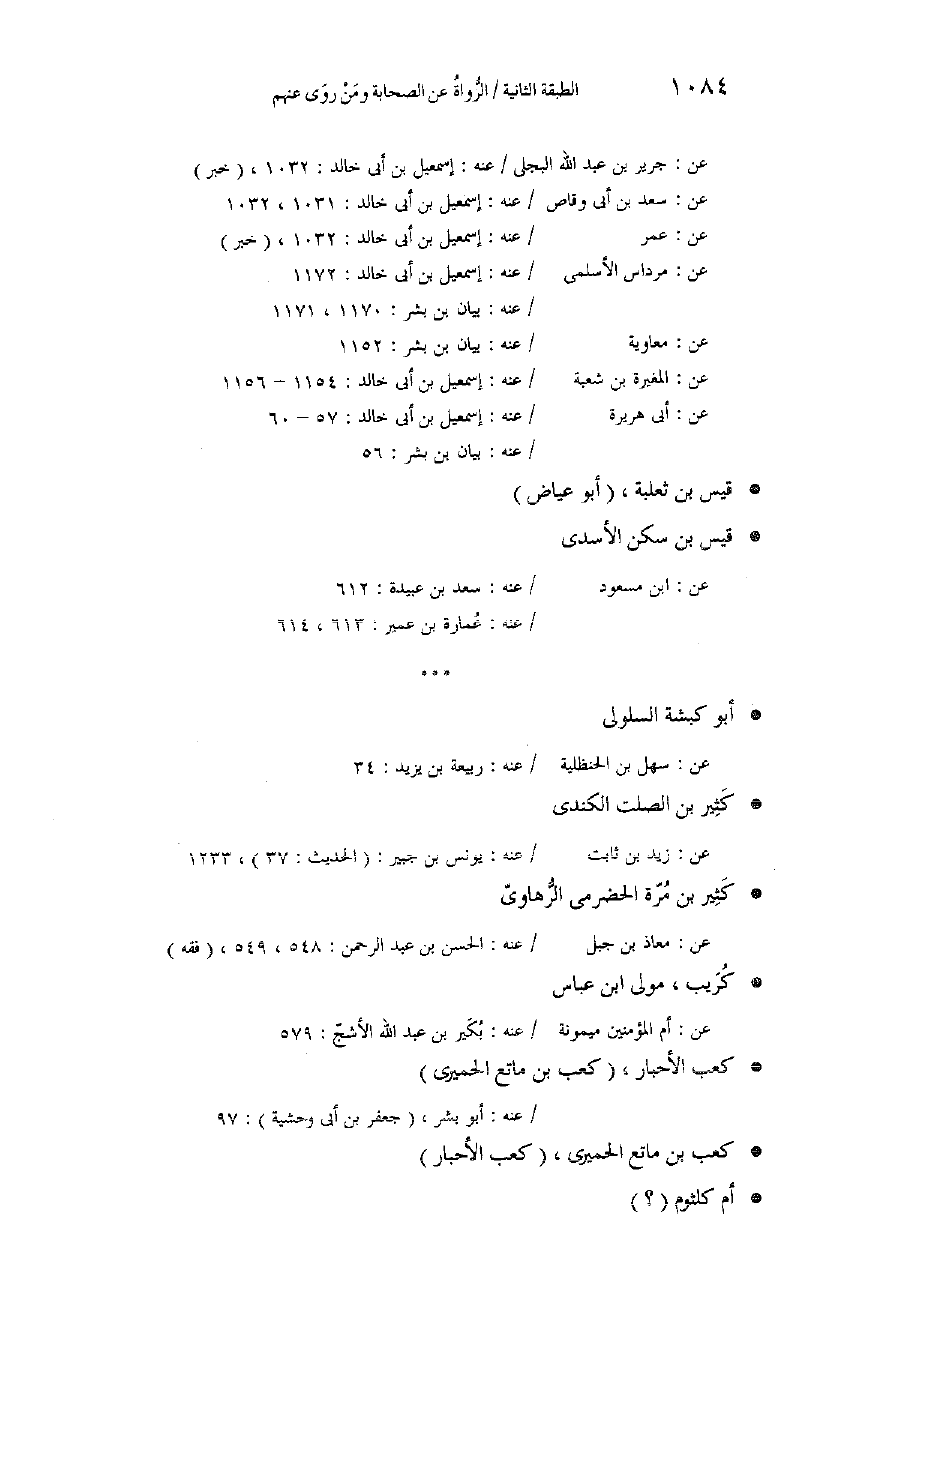 ١٠٨٤ الطبقة الثانية / الرُّواةُ عن الصحابة ومَنْ روَى عنهم
عن : جرير بن عبد الله البجلى / عنه : إسمعيل بن أبى خالد : ١٠٣٢ ، ( خبر )
عن : سعد بن أبى وقاص / عنه : إسمعيل بن أبى خالد : ١٠٣١ ، ١٠٣٢
عن : عمر / عنه : إسمعيل بن أبى خالد : ١٠٣٢ ، ( خبر )
عن : مرداس الأسلمى / عنه : إسمعيل بن أبى خالد : ١١٧٢
/ عنه : بيان بن بشر : ١١٧٠ ، ١١٧١
عن : معاوية / عنه : بيان بن بشر : ١١٥٢
عن : المغيرة بن شعبة / عنه : إسمعيل بن أبى خالد : ١١٥٤ – ١١٥٦
عن : أبى هريرة / عنه : إسمعيل بن أبى خالد : ٥٧ – ٦٠
/ عنه : بيان بن بشر : ٥٦
● قيس بن ثعلبة ، ( أبو عياض )
● قيس بن سكن الأسدى
عن : ابن مسعود / عنه : سعد بن عبيدة : ٦١٢
/ عنه : عُمارة بن عمير : ٦١٣ ، ٦١٤
* * *
● أبو كبشة السلولى
عن : سهل بن الحنظلية / عنه : ربيعة بن يزيد : ٣٤
● كَثِير بن الصلت الكندى
عن : زيد بن ثابت / عنه : يونس بن جبير : ( الحديث : ٣٧ ) ، ١٢٣٣
● كَثِير بن مُرّة الحضرمى الرُّهاوىّ
عن : معاذ بن جبل / عنه : الحسن بن عبد الرحمن : ٥٤٨ ، ٥٤٩ ، ( فقه )
● كُرَيب ، مولى ابن عباس
عن : أم المؤمنين ميمونة / عنه : بُكَير بن عبد الله الأشجّ : ٥٧٩
● كعب الأحبار ، ( كعب بن ماتع الحميرى )
/ عنه : أبو بشر ، ( جعفر بن أبى وحشية ) : ٩٧
● كعب بن ماتع الحميرى ، ( كعب الأحبار )
● أم كلثوم ( ؟ )